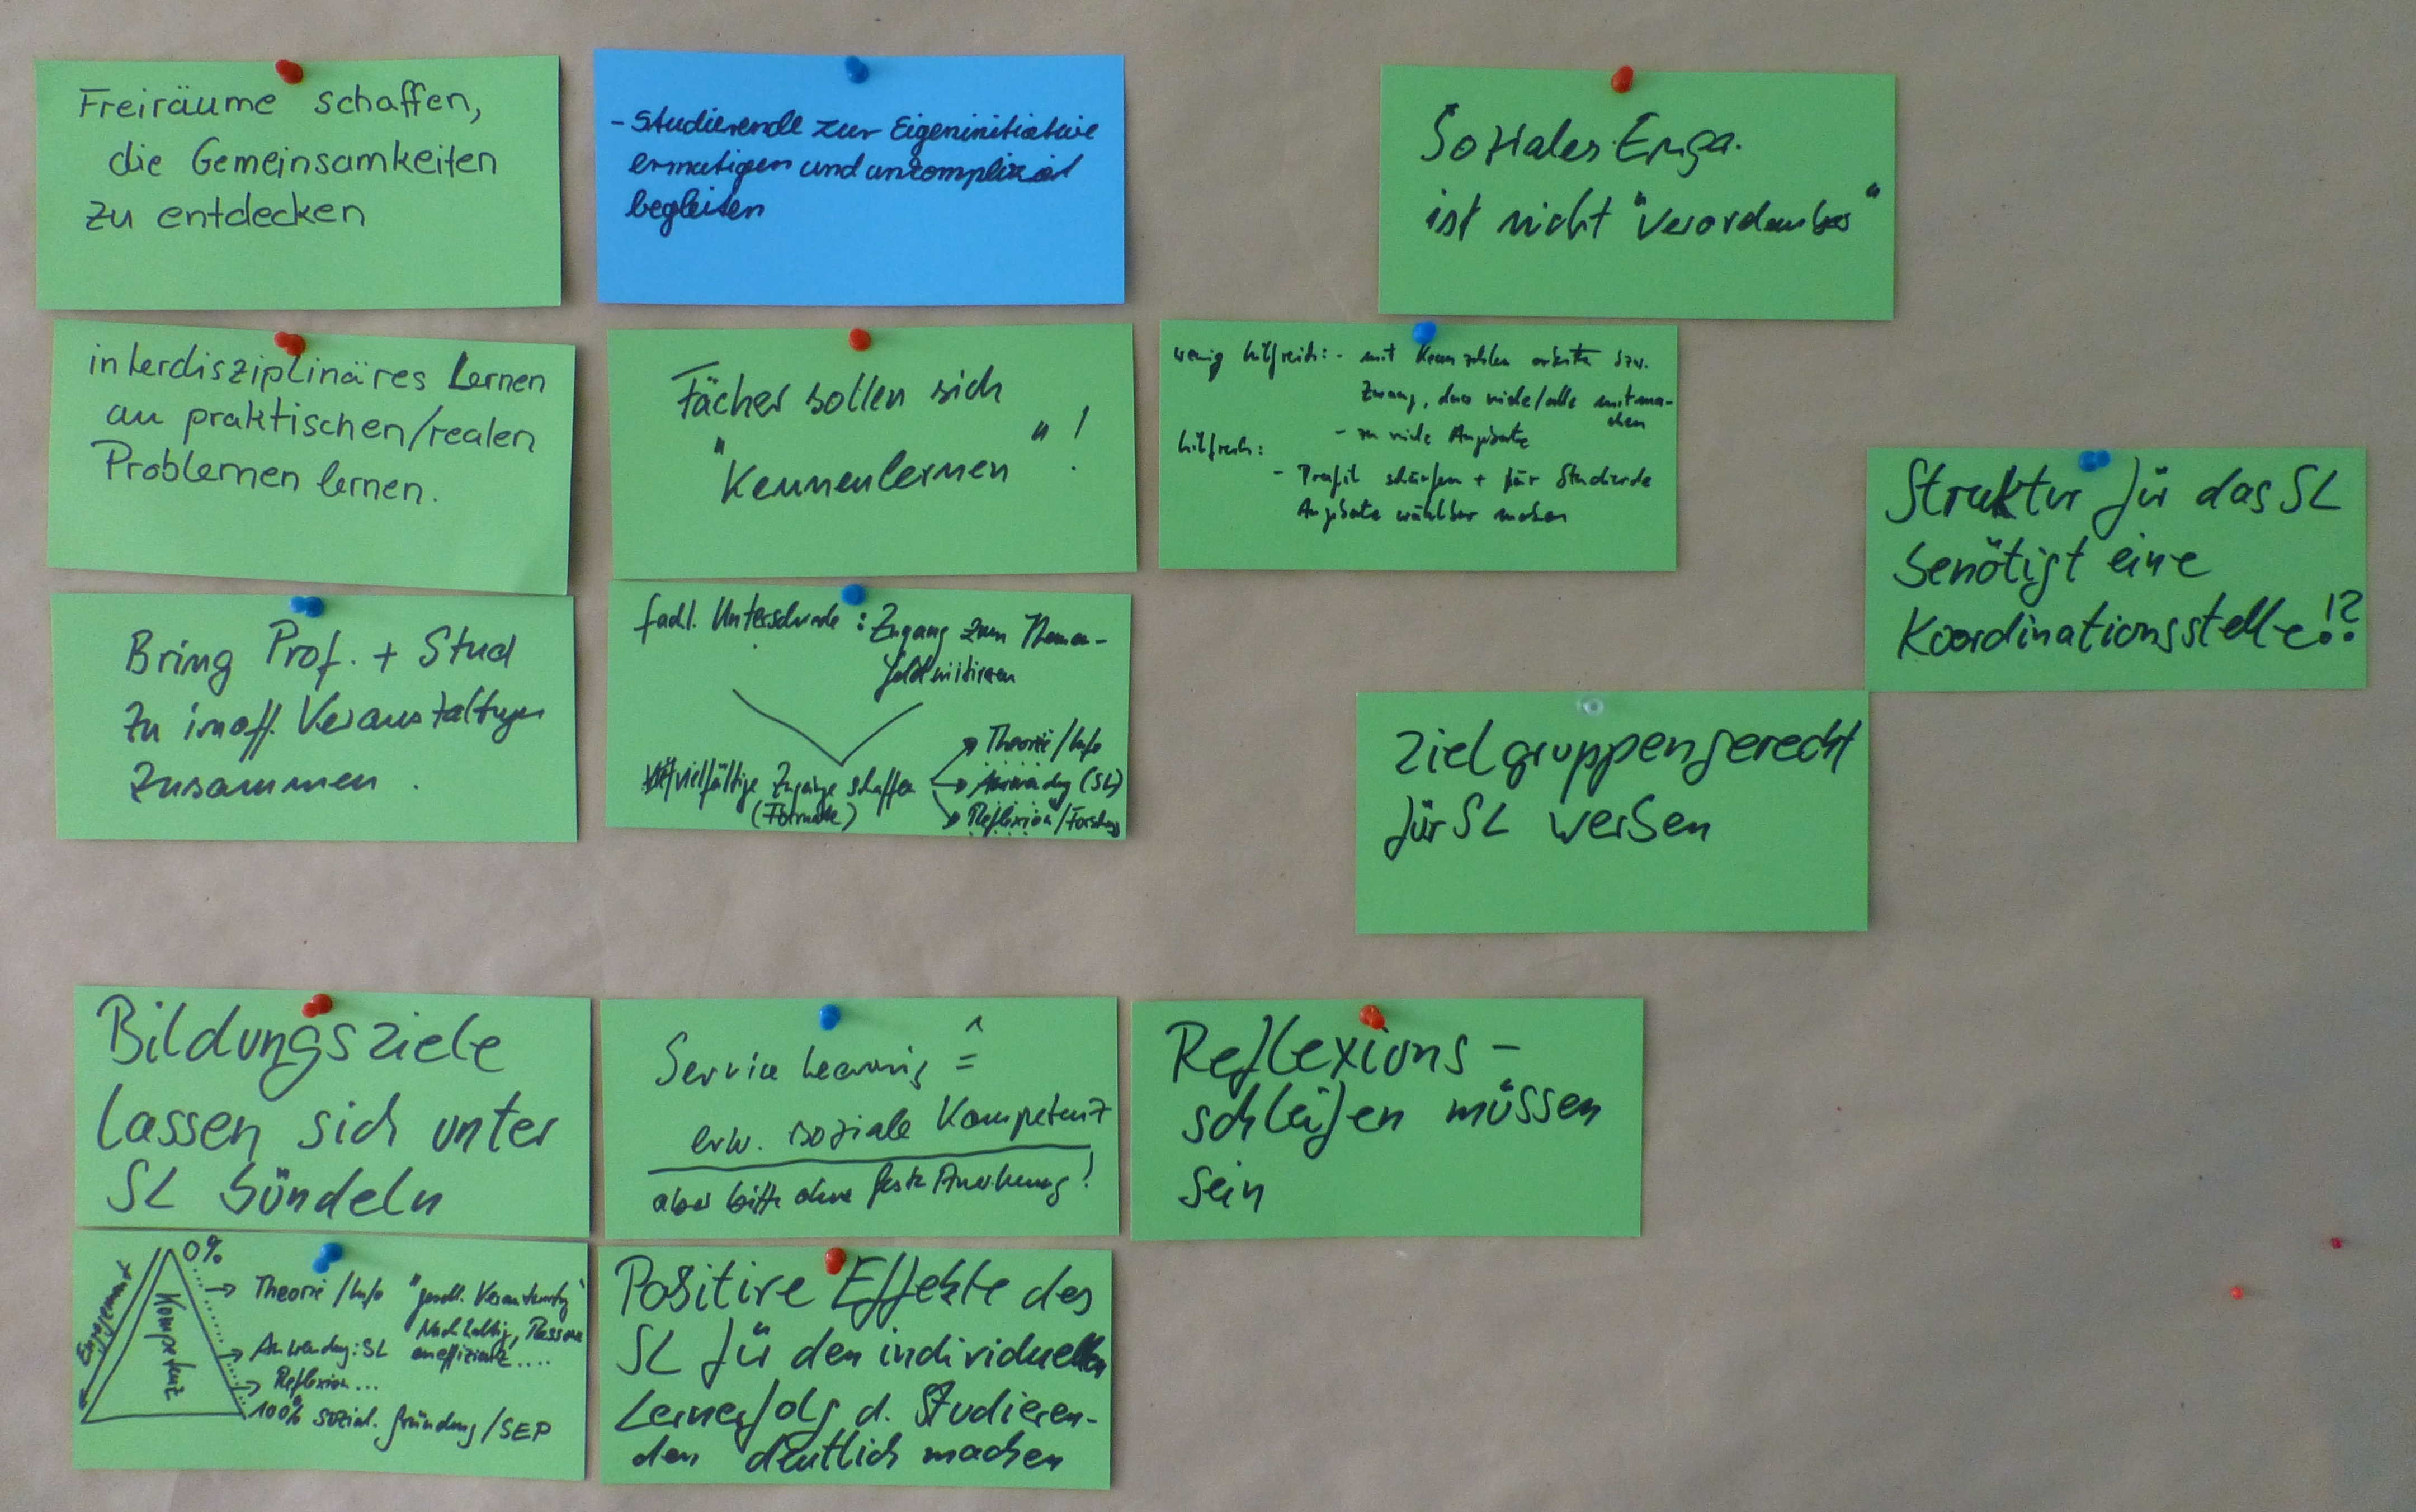 Freiräume schaffen,
die Gemeinsamkeiten
zu entdecken
- Studierende zur Eigeninitiative
ermutigen und unkompliziert
begleiten
Soziales Enga.
ist nicht "verordenbar"
interdisziplinäres Lernen
an praktischen/realen
Problemen lernen.
Fächer sollen sich
"Kennenlernen"!
wenig hilfreich: - mit Kennzahlen arbeiten bzw.
Zwang, dass viele/alle mitma-
chen
- zu viele Angebote
hilfreich:
- Profil schärfen + für Studierde
Angebote wählbar machen
Struktur für das SL
benötigt eine
Koordinationsstelle!?
Bring Prof. + Stud
zu inoff. Veranstaltungen
zusammen.
fachl. Unterschiede: Zugang zum Themen-
feld
vielfältige Zugänge schaffen
(Formate)
Theorie/Info
Anwendung (SL)
Reflexion/Forschung
Zielgruppengerecht
für SL werben
Bildungsziele
lassen sich unter
SL bündeln
Service Learning ≙
erw. soziale Kompetenz
aber bitte ohne feste Anrechnung!
Reflexions-
schleifen müssen
sein
0%
Engagement
Kompetenz
Theorie/Info "gesell. Verantwortg"
Nachhaltig, Ressour
eneffizienz....
Anwendung: SL
Reflexion...
100% sozial. Gründung/SEP
Positive Effekte des
SL für den individuellen
Lernerfolg d. Studieren-
den deutlich machen